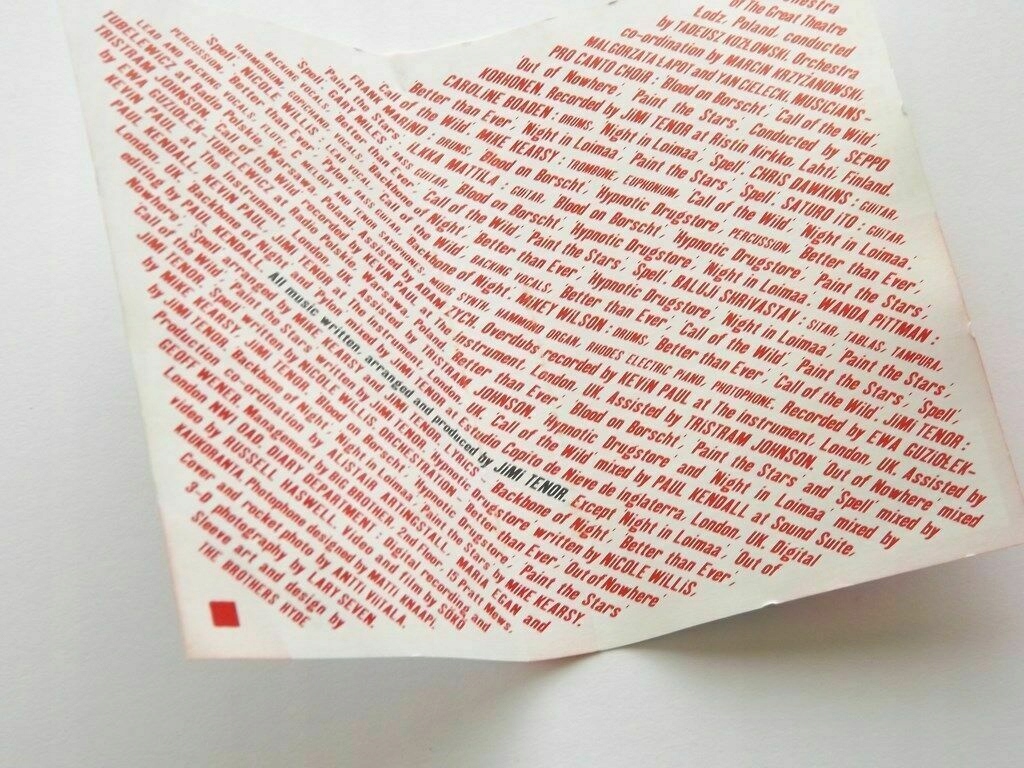 of The Great Theatre
Lodz, Poland, conducted
by TADEUSZ KOZŁOWSKI. Orchestra
co-ordination by MARCIN KRZYŻANOWSKI
MALGORZATA LAPOT and YAN CIELECK. MUSICIANS-
PRO CANTO CHOIR : 'Blood on Borscht', 'Call of the Wild',
Out of Nowhere', 'Paint the Stars'. Conducted by SEPPO
KORHONEN. Recorded by JIMI TENOR at Ristin Kirkko, Lahti, Finland.
CAROLINE BOADEN : DRUMS, 'Night in Loimaa', 'Spell'. CHRIS DAWKINS : GUITAR,
'Better than Ever', 'Night in Loimaa', 'Paint the Stars', 'Spell'. SATURU ITO : GUITAR,
'Call of the Wild'. MIKE KEARSY : TROMBONE, EUPHONIUM, 'Call of the Wild', 'Night in Loimaa',
FRANK MARINO : DRUMS, 'Blood on Borscht', 'Hypnotic Drugstore', PERCUSSION, 'Better than Ever',
'Paint the Stars'. ILKKA MATTILA : GUITAR, 'Blood on Borscht', 'Hypnotic Drugstore', 'Paint the Stars',
'Spell'. GARY MILES : BASS GUITAR, 'Blood on Borscht', 'Hypnotic Drugstore', 'Night in Loimaa'. WANDA PITTMAN :
BACKING VOCALS, 'Better than Ever', 'Call of the Wild', 'Paint the Stars', 'Spell'. BALUJI SHRIVASTAV : SITAR, TABLAS, TAMPURA,
HARMONIUM, 'Backbone of Night', 'Better than Ever', 'Hypnotic Drugstore', 'Night in Loimaa', 'Paint the Stars',
'Spell'. NICOLE WILLIS : LEAD VOCALS, 'Call of the Wild', BACKING VOCALS, 'Better than Ever', 'Call of the Wild', 'Paint the Stars', 'Spell',
PERCUSSION, 'Better than Ever', 'Backbone of Night'. MIKEY WILSON : DRUMS, 'Better than Ever', 'Call of the Wild'. JIMI TENOR :
LEAD AND BACKING VOCALS, FLUTE, C MELODY AND TENOR SAXOPHONES, MOOG SYNTH, HAMMOND ORGAN, RHODES ELECTRIC PIANO, PHOTOPHONE. Recorded by EWA GUZIOLEK-
TUBELEWICZ at Radio Polskie, Warsawa, Poland. Assisted by ADAM ZYCH. Overdubs recorded by KEVIN PAUL at The Instrument, London, UK. Assisted by
TRISTRAM JOHNSON. 'Call of the Wild' recorded by KEVIN PAUL at The Instrument, London, UK. Assisted by TRISTRAM JOHNSON. 'Out of Nowhere' mixed
by EWA GUZIOLEK-TUBELEWICZ at Radio Polskie, Warsawa, Poland. 'Better than Ever', 'Blood on Borscht', 'Paint the Stars' and 'Spell' mixed by
KEVIN PAUL at The Instrument, London, UK. Assisted by TRISTRAM JOHNSON. 'Hypnotic Drugstore' and 'Night in Loimaa' mixed by
PAUL KENDALL, KEVIN PAUL, JIMI TENOR at The Instrument, London, UK. 'Call of the Wild' mixed by PAUL KENDALL at Sound Suite,
London, UK. 'Backbone of Night' mixed by JIMI TENOR at Estudio Copito de Nieve de Inglaterra, London, UK. Digital
editing by PAUL KENDALL. All music written, arranged and produced by JIMI TENOR. Except 'Night in Loimaa', 'Out of
Nowhere', 'Spell' arranged by MIKE KEARSY and JIMI TENOR. LYRICS – 'Backbone of Night', 'Better than Ever',
'Call of the Wild', 'Spell' written by NICOLE WILLIS. 'Hypnotic Drugstore' written by NICOLE WILLIS,
JIMI TENOR. ORCHESTRATION – 'Better than Ever', 'Out of Nowhere'
by MIKE KEARSY & JIMI TENOR. 'Blood on Borscht', 'Hypnotic Drugstore', 'Paint the Stars'
by JIMI TENOR. 'Backbone of Night', 'Night in Loimaa', 'Spell' by MIKE KEARSY.
Production co-ordination by ALISTAIR ARTINGSTALL, MARIA EGAN and
GEOFF WENER. Management by BIG BROTHER, 2nd Floor, 15 Park Mews,
London NWI DAD. DIARY DEPARTMENT : digital recording and
Video by RUSSELL HASWELL. Video and film by SÖKÖ
KAUKORANTA. Photophone designed by MATTI KNAAPI.
Cover and rocket photo by ANTTI VIITALA.
3-D photography by LARRY SEVEN.
Sleeve art and design by
THE BROTHERS HYDE